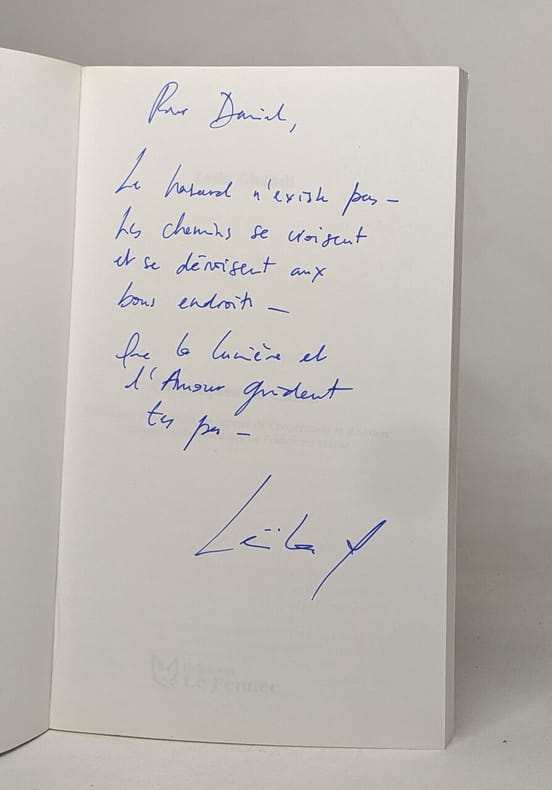 Pour Daniel,
Le hasard n'existe pas –
Les chemins se croisent
et se décroisent aux
bons endroits –
Que la lumière et
l'Amour guident
tes pas –
Leïla
Editions
Le Fennec